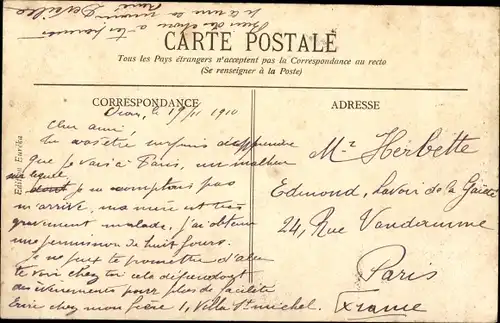 Bien des choses à tes parents
CARTE POSTALE
Tous les Pays étrangers n'acceptent pas la Correspondance au recto
(Se renseigner à la Poste)
CORRESPONDANCE
Oran, le 19/11 1910
Cher ami,
Tu vas être surpris d'apprendre
que je vais à Paris, un malheur
sur lequel
je ne comptais pas
m'arrive, ma mère est très
gravement malade, j'ai obtenu
une permission de huit jours.
Je ne peux te promettre d'aller
te voir chez toi cela dépendant
des évènements pour plus de facilité
Ecrire chez mon frère 1, Villa St michel.
Edition Eureka
ADRESSE
Mr Herbette
Edmond, Lavoir de la Gaîté
24, Rue Vandamme
Paris
France